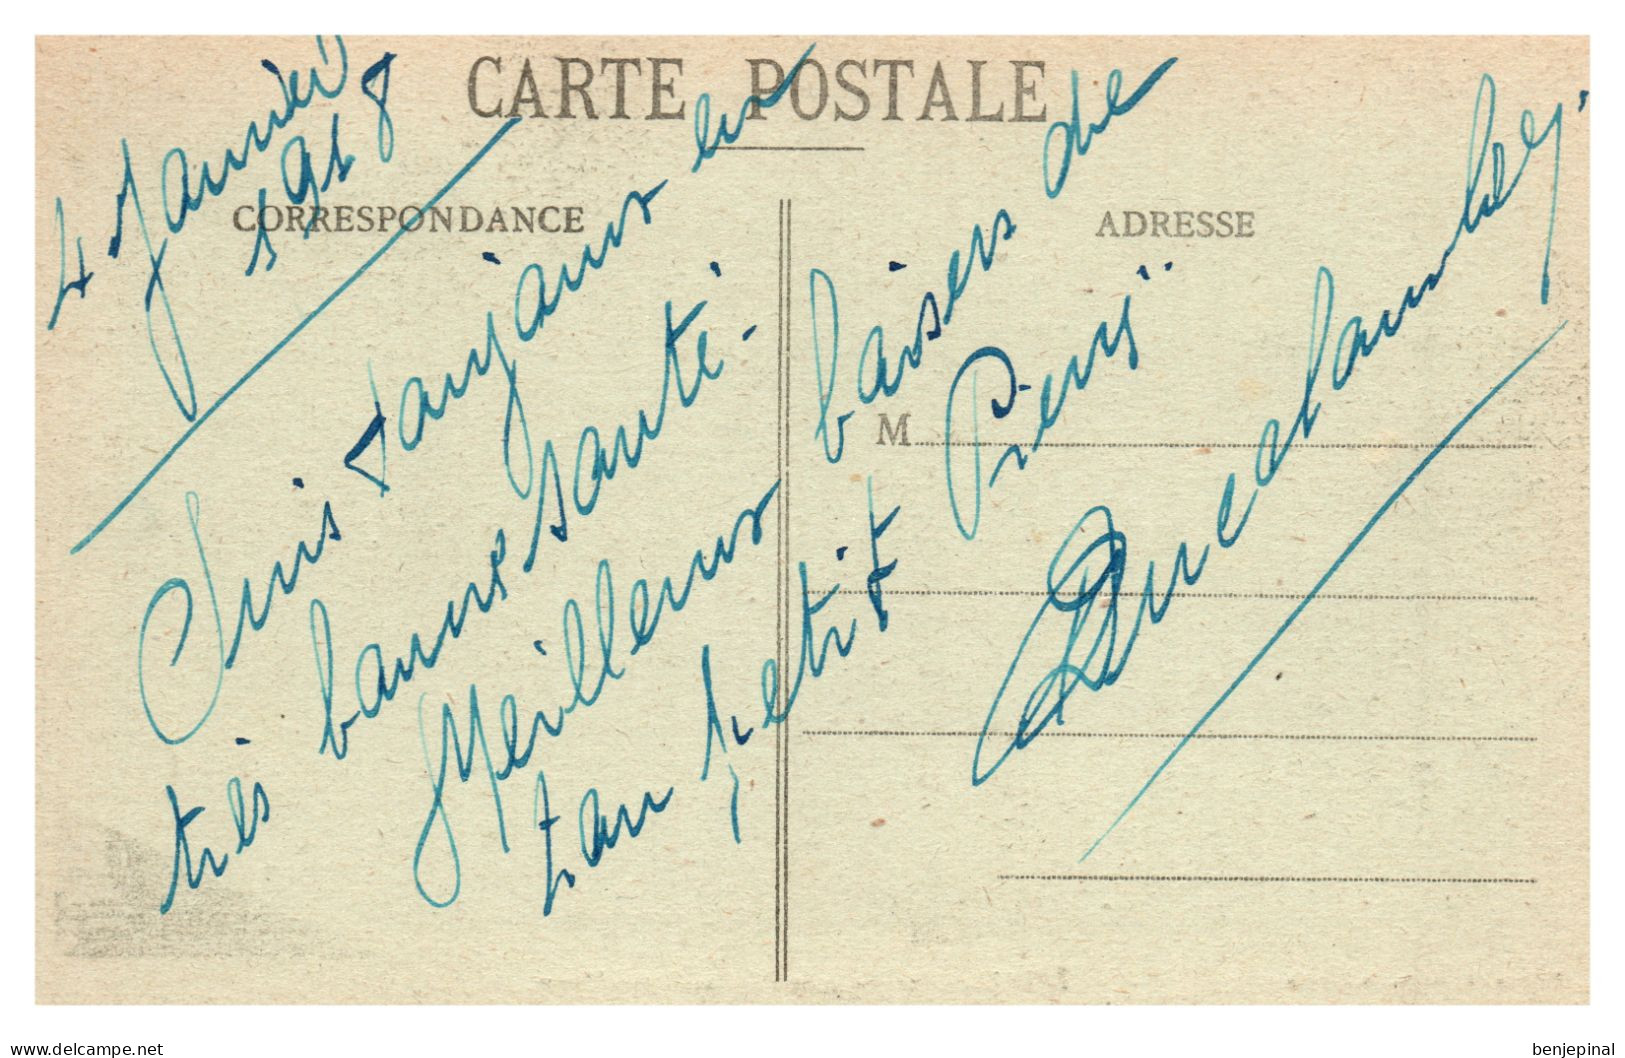 CARTE POSTALE
CORRESPONDANCE
ADRESSE
M
4 Janvier
1918
Suis toujours en
très bonne santé.
Meilleurs baisers de
ton petit Pierrÿ
www.delcampe.net
benjepinal